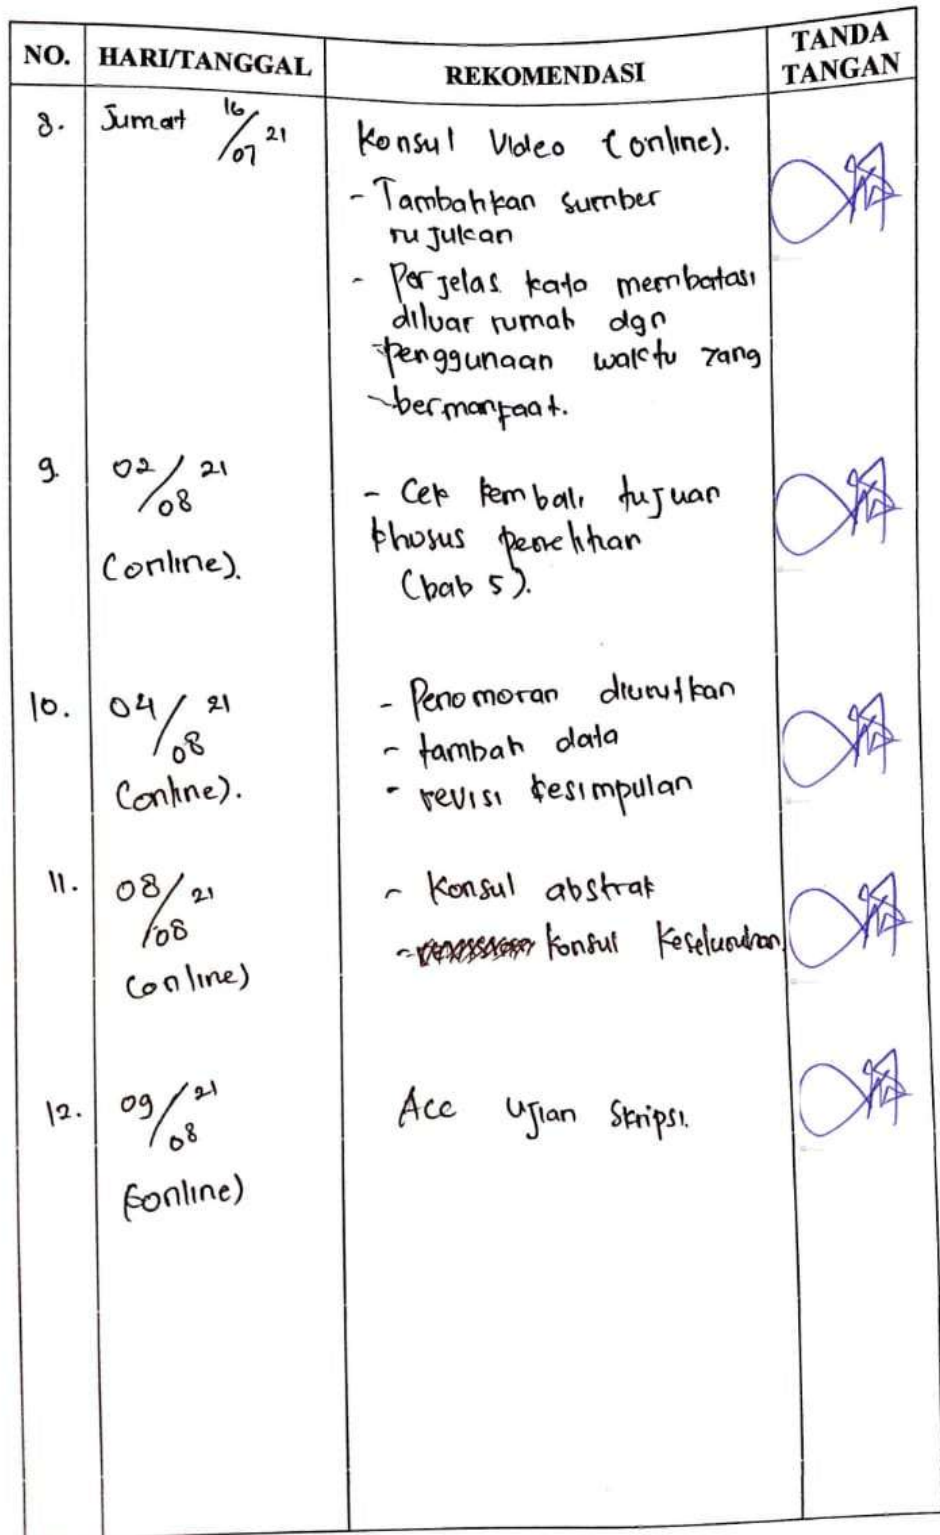 NO. HARI/TANGGAL REKOMENDASI TANDA TANGAN
8. Jumat 16/07 21 Konsul Video (online).
- Tambahkan sumber
rujukan
- Perjelas kata membatasi
diluar rumah dgn
penggunaan waktu yang
bermanfaat.
9. 02/08 21 - Cek kembali tujuan
(online). khusus penelitian
(bab 5).
10. 04/08 21 - Penomoran diurutkan
- tambah data
(online). - revisi kesimpulan
11. 08/08 21 - Konsul abstrak
- Konsul Keseluruhan
(online)
12. 09/08 21 Acc Ujian Skripsi.
(online)